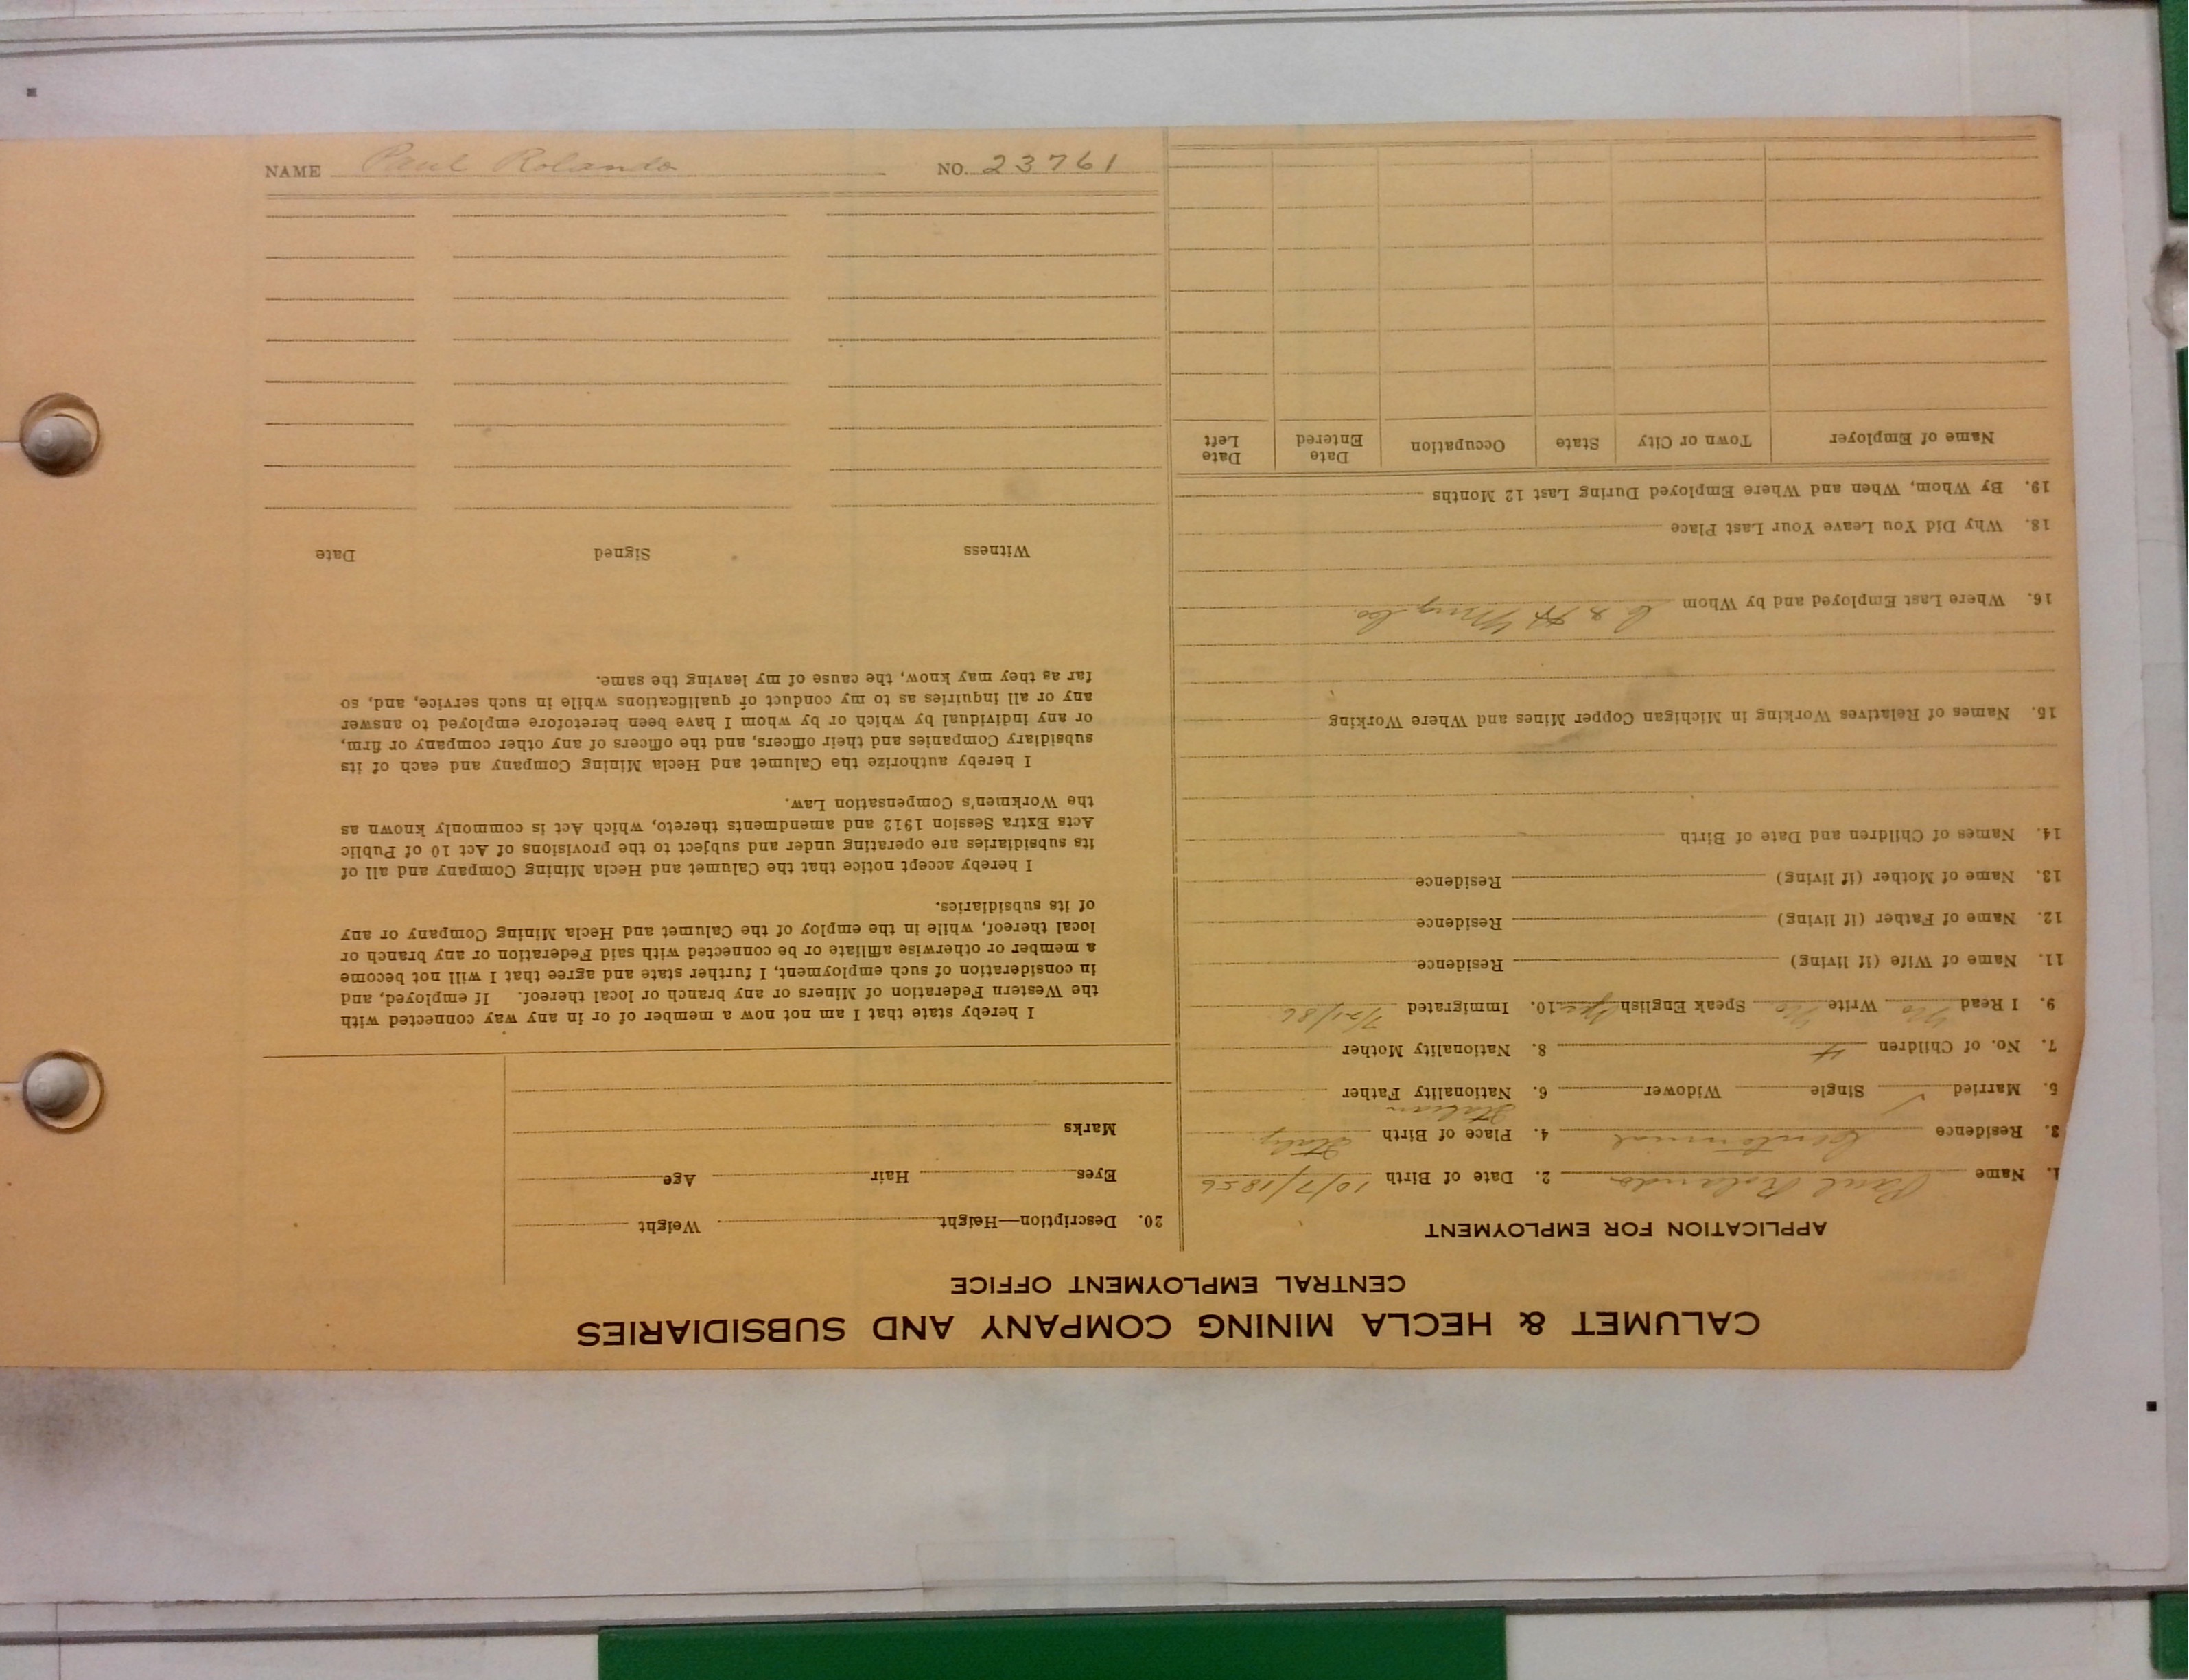 CALUMET & HECLA MINING COMPANY AND SUBSIDIARIES
CENTRAL EMPLOYMENT OFFICE
APPLICATION FOR EMPLOYMENT
1. Name Paul Rolando 2. Date of Birth 10/7/1856
3. Residence Centennial 4. Place of Birth Italy
Italian
5. Married ✓ Single Widower 6. Nationality Father
7. No. of Children 4 8. Nationality Mother
9. I Read No Write No Speak English Yes 10. Immigrated 7/21/86
11. Name of Wife (if living) Residence
12. Name of Father (if living) Residence
13. Name of Mother (if living) Residence
14. Names of Children and Date of Birth
15. Names of Relatives Working in Michigan Copper Mines and Where Working
16. Where Last Employed and by Whom C & H Mng Co.
18. Why Did You Leave Your Last Place
19. By Whom, When and Where Employed During Last 12 Months
Name of Employer Town or City State Occupation Date Entered Date Left
20. Description—Height Weight
Eyes Hair Age
Marks
I hereby state that I am not now a member of or in any way connected with
the Western Federation of Miners or any branch or local thereof. If employed, and
in consideration of such employment, I further state and agree that I will not become
a member or otherwise affiliate or be connected with said Federation or any branch or
local thereof, while in the employ of the Calumet and Hecla Mining Company or any
of its subsidiaries.
I hereby accept notice that the Calumet and Hecla Mining Company and all of
its subsidiaries are operating under and subject to the provisions of Act 10 of Public
Acts Extra Session 1912 and amendments thereto, which Act is commonly known as
the Workmen's Compensation Law.
I hereby authorize the Calumet and Hecla Mining Company and each of its
subsidiary Companies and their officers, and the officers of any other company or firm,
or any individual by which or by whom I have been heretofore employed to answer
any or all inquiries as to my conduct or qualifications while in such service, and, so
far as they may know, the cause of my leaving the same.
Witness Signed Date
NAME Paul Rolando NO. 23761